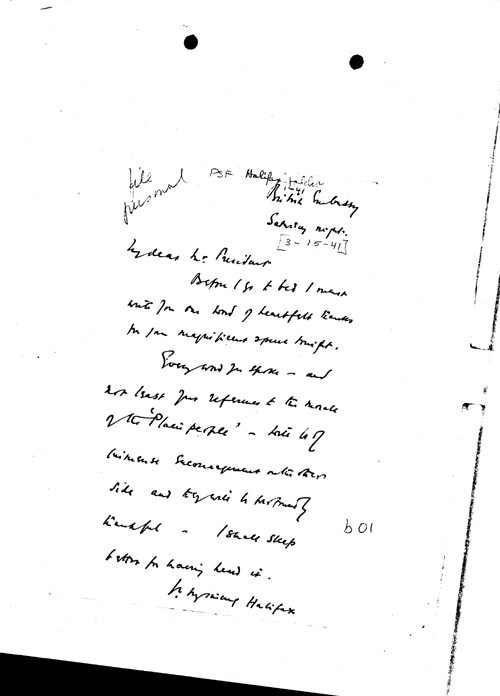 file
personal
PSF Halifax folder
1-41
British Embassy
Saturday night.
[3-15-41]
My dear Mr. President
Before I go to bed I must
write you one word of heartfelt thanks
for your magnificent speech tonight.
Every word you spoke - and
not least your reference to the morale
of the 'Plain people' - will be of
immense encouragement on the other
side and they will be profoundly
thankful - I shall sleep
better for having heard it.
b01
Halifax